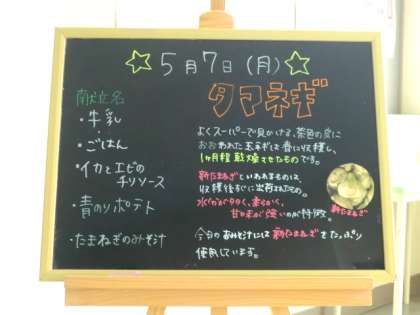 ☆5月7日(月)☆
献立名
・牛乳
・ごはん
・イカとエビの
チリソース
・青のりポテト
・たまねぎのみそ汁
タマネギ
よくスーパーで見かける、茶色の皮に
おおわれた玉ネギは春に収穫し、
1ヶ月程乾燥させたものです。
新たまねぎといわれるものは、
収穫後すぐに出荷されたもの。
水分が多く、柔らかく、
甘味が強いのが特徴。
新たまねぎ
今日のおみそ汁には新たまねぎをたっぷり
使用しています。